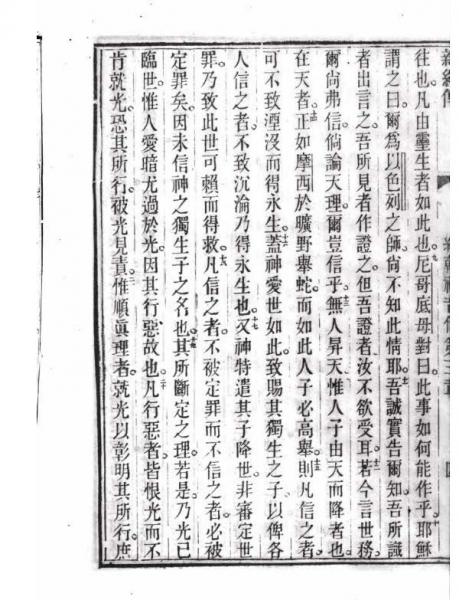 往也凡由靈生者如此也九尼哥底母對曰此事如何能作乎十耶穌
謂之曰爾為以色列之師尚不知此情耶十一吾誠實告爾知吾所識
者出言之吾所見者作證之但吾證者汝不欲受耳十二若今言世務
爾尚弗信倘論天理爾豈信乎十三無人昇天惟人子由天而降者也
在天者十四正如摩西於曠野舉蛇而如此人子必高舉十五則凡信之者
可不致湮沒而得永生十六蓋神愛世如此致賜其獨生之子以俾各
人信之者不致沉淪乃得永生也十七又神特遣其子降世非審定世
罪乃致此世可賴而得救十八凡信之者不被定罪而不信之者必被
定罪矣因未信神之獨生子之名也十九其所斷定之理若是乃光已
臨世惟人愛暗尤過於光因其行惡故也二十凡行惡者皆恨光而不
肯就光恐其所行被光見責二一惟順眞理者就光以彰明其所行庶